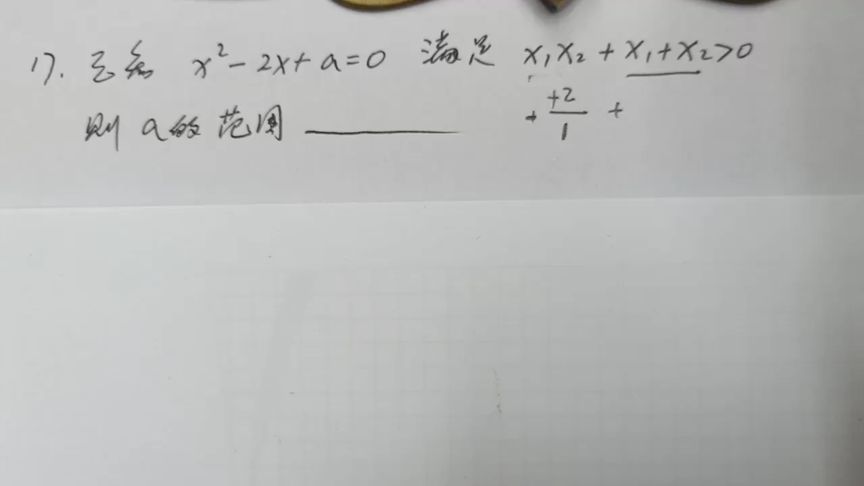 17. 已知 x²-2x+a=0 满足 x₁x₂+x₁+x₂>0
则 a的范围 ______
+ +2/1 +